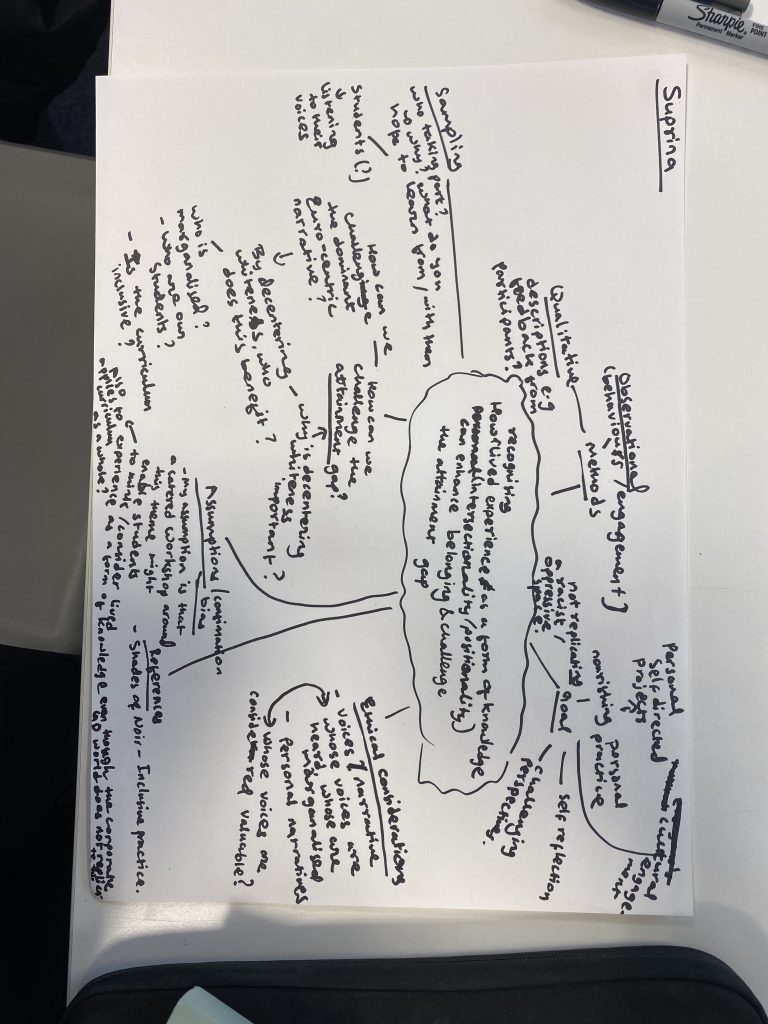 Suprina
Sampling
who taking part?
why? what do you
hope to learn from/with them
Students (?)
↓
listening
to their
voices
Qualitative
descriptions e.g
feedback from
participants?
Observational
(behaviours/engagement)
methods
not replicating
a racist/
oppressive
space.
goal
nourishing personal
practice
Personal
self directed
projects
cultural
engage-
ment
self reflection
challenging
perspective.
recognising
How lived experience as a form of knowledge
intersectionality/positionality)
can enhance belonging & challenge
the attainment
gap
How can we
challenge
the dominant
Euro-centric
narrative?
↓
By decentering
whiteness, who
does this benefit?
who is
marganalised?
- who are our
students?
- Is the curriculum
inclusive?
How can we
challenge the
attainment gap?
- why is decentering
whiteness
important?
Assumptions/confimation
bias
- My assumption is that
a catered workshop around
this theme might
enable students
to think/consider lived
experience as a form of knowledge even though the corporate
world does not
also to
applies curriculum
as a whole?
References
- Shades of Noir - Inclusive practice.
Ethical considerations
- voices & narrative
whose voices are
heard, whose are
marganalised
- Personal narratives
whose voices are
considered valuable?
Sharpie
FINE
POINT
Permanent Marker